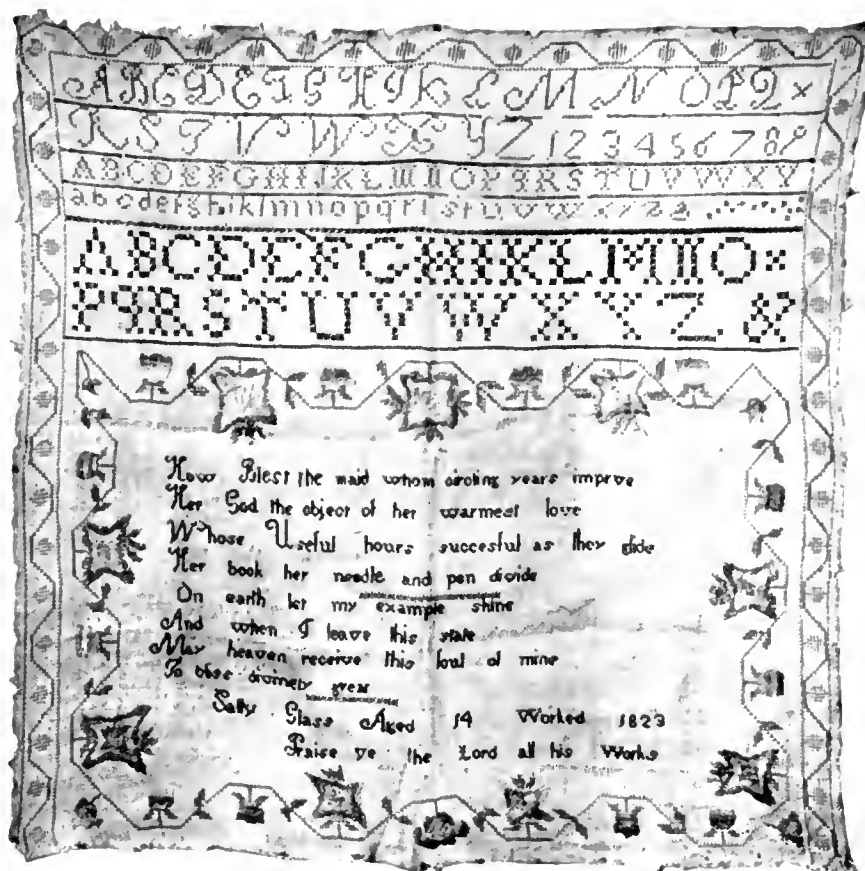 A B C D E F G H I K L M N O P Q ×
R S T V W X Y Z 1 2 3 4 5 6 7 8 9
A B C D E F G H I J K L M N O P Q R S T U V W X Y
a b c d e f g h i k l m n o p q r ſ s t u v w x y z &
A B C D E F G H I K L M N O ×
P Q R S T U V W X Y Z . &
How Blest the maid whom circling years improve
Her God the object of her warmest love
Whose Useful hours succesful as they glide
Her book her needle and pen divide
On earth let my example shine
And when I leave this state
May heaven receive this soul of mine
To bliss divinely great
Sally Glass Aged 14 Worked 1823
Praise ye the Lord all his Works